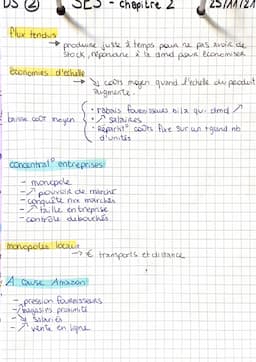 DS ② SES - Chapitre 2 25/11/21
Flux tendus
→ produire juste à temps pour ne pas avoir de
stock, répondre à la dmd pour économiser
économies d'échelle
→ ↘ coûts moyen quand l'échelle du produit
augmente.
baisse coût moyen
• rabais fournisseurs car qui dmd ↗
• ↗ salaires
• Répartit° coûts fixe sur un + grand nb
d'unités
concentrat° entreprises
- monopole
- ↗ pouvoir de marché
- conquête nvx marchés
- ↗ taille entreprise
- contrôle débouchés
monopoles locaux
→ € transports et distance
À cause Amazon
- pression fournisseurs
- magasins proximité
- ↘ salariés
- ↗ vente en ligne